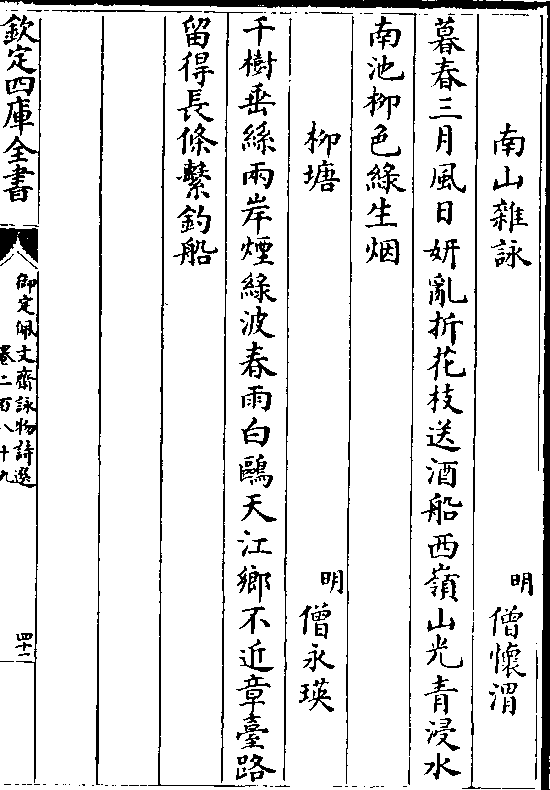 南山雜詠
明 僧懷渭
暮春三月風日妍亂折花枝送酒船西嶺山光青浸水
南池柳色綠生烟
柳塘
明 僧永瑛
千樹垂絲兩岸煙綠波春雨白鷗天江鄉不近章臺路
留得長條繫釣船
欽定四庫全書
御定佩文齋詠物詩選
卷二百八十九
四十二